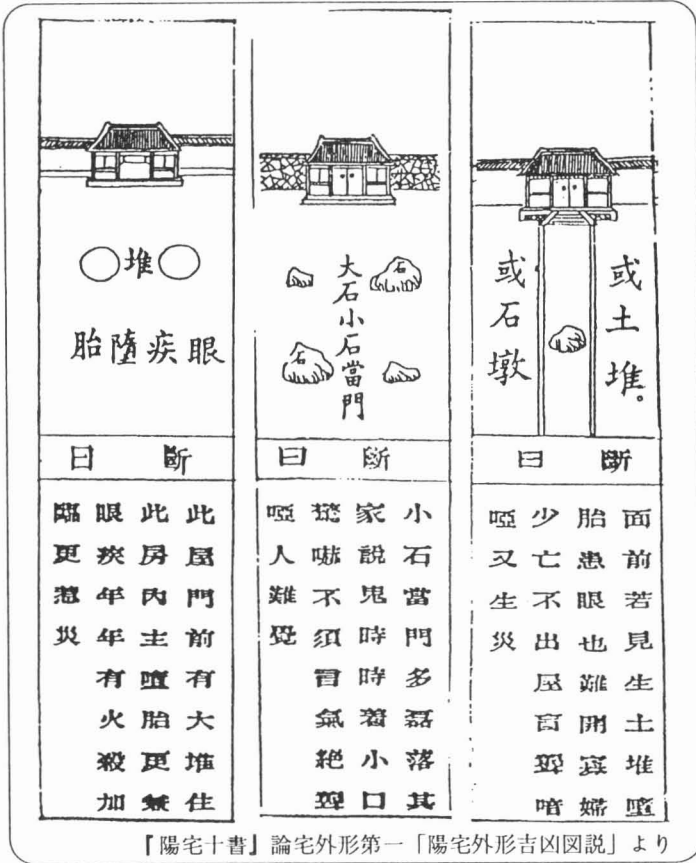 或土堆。
或石墩
斷曰
面前若見生土堆墮
胎患眼也難開寡婦
少亡不出屋盲聾喑
啞又生災
石
大石小石當門
石
斷曰
小石當門多磊落其
家說鬼時時着小口
驚嚇不須冒氣絕聾
啞人難覺
堆
眼疾墮胎
斷曰
此屋門前有大堆住
此房內主墮胎更兼
眼疾年年有火殺加
臨更惹災
『陽宅十書』論宅外形第一「陽宅外形吉凶図説」より